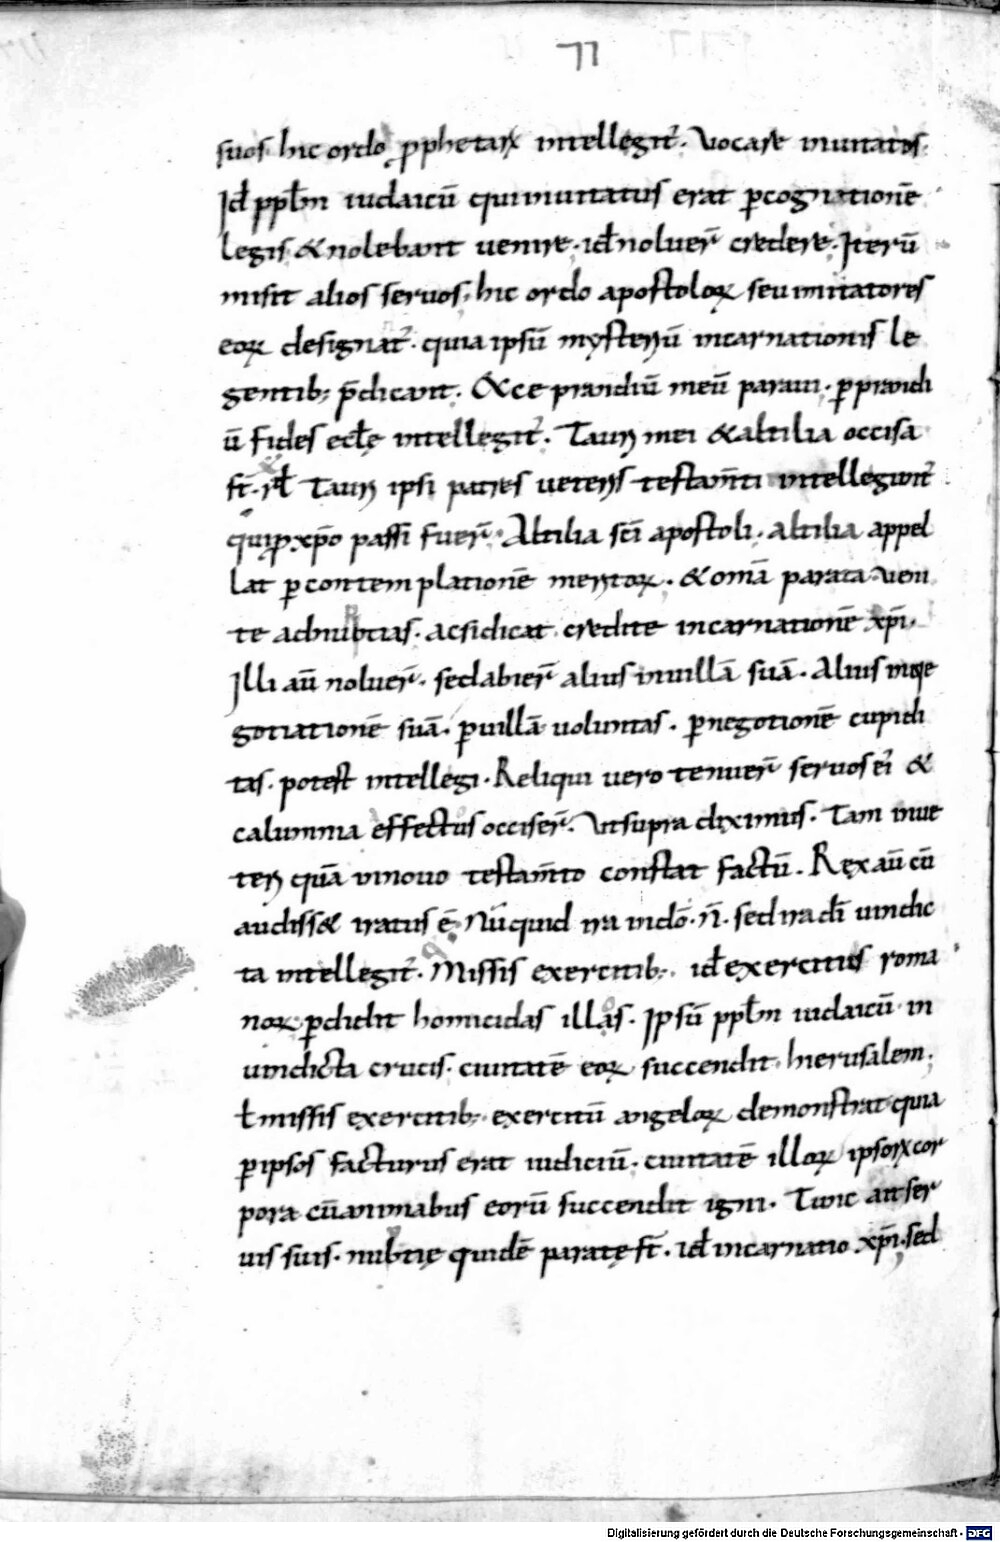 77
suos. hic ordo pphetarꝝ intellegit᷑. Vocare inuitatos.
Id ppłm iudaicū qui inuitatus erat ꝑ cognationē
legis & nolebant uenire. id noluer̄ credere. Iterū
misit alios seruos. hic ordo apostoloꝝ seu imitatores
eoꝝ designat᷑. quia ipsū mysteriū incarnationis le
gentib; p̄dicant. Ecce prandiū meū paraui. ꝑ prandi
ū fides eccłę intellegit᷑. Tauri mei & altilia occisa
st̄. Id Tauri ipsi patres ueteris testam̄ti intellegunt᷑
qui ꝓ xp̄o passi fuer̄. Altilia sc̄i apostoli. altilia appel
lat ꝑ contemplationē meritoꝝ. & om̄a parata ueni
te ad nubtias. ac si dicat credite incarnationē xp̄i.
Illi aū noluer̄. sed abier̄ alius in uillā suā. Alius in ne
gotiationē suā. ꝑ uillā uoluntas. ꝑ negotionē cupidi
tas. potest intellegi. Reliqui uero tenuer̄ seruos ei᷑ &
calumnia effectus occiser̄. Vt supra diximus. Tam in ue
teri quā in nouo testam̄to constat factū. Rex aū cū
audiss& iratus ē. Nūquid ira in do᷑. n̄. sed ira dī uindic
ta intellegit᷑. Missis exercitib;. id exercitus roma
noꝝ ꝑdidit homicidas illas. Ipsū ppłm iudaicū in
uindicta crucis. ciuitatē eoꝝ succendit. hierusalem.
ł missis exercitib;. exercitū angeloꝝ demonstrat quia
ꝑ ipsos facturus erat iudiciū. ciuitatē illoꝝ ipsorꝝ cor
pora cū animabus eorū succendit igni. Tunc ait ser
uis suis. nubtię quidē paratę st̄. id incarnatio xp̄i. sed
Digitalisierung gefördert durch die Deutsche Forschungsgemeinschaft - DFG